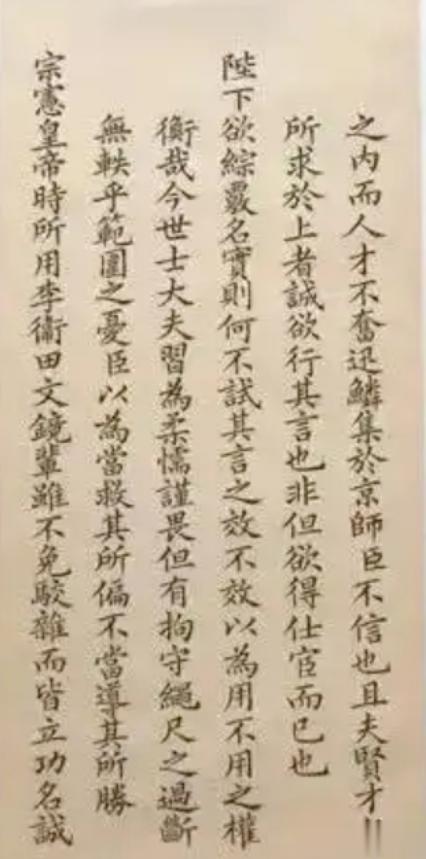 之内而人才不奮迅鱗集於京師臣不信也且夫賢才
所求於上者誠欲行其言也非但欲得仕宦而已也
陛下欲綜覈名實則何不試其言之效不效以為用不用之權
衡哉今世士大夫習為柔懦謹畏但有拘守繩尺之過斷
無軼乎範圍之憂臣以為當救其所偏不當導其所勝
宗憲皇帝時所用李衛田文鏡輩雖不免駁雜而皆立功名誠